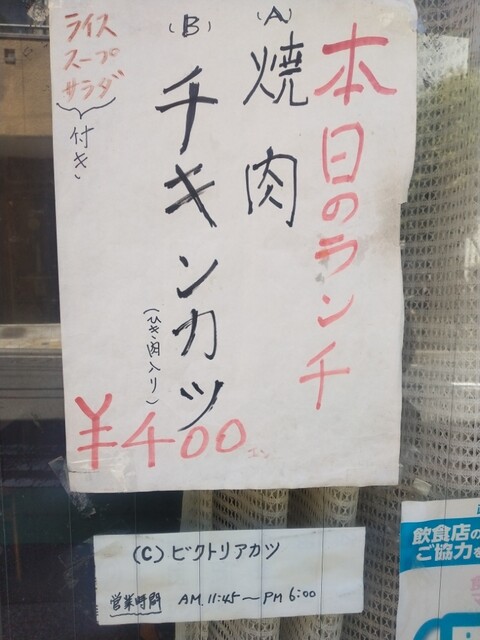 本日のランチ
(A)
焼肉
(B)
チキンカツ
(ひき肉入り)
ライス
スープ
サラダ
付き
¥400エン
(C) ビクトリアカツ
営業時間 AM 11:45〜PM 6:00
飲食店の
ご協力を